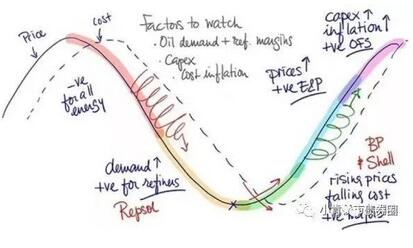 Price
cost
Factors to watch
· Oil demand + ref. margins
· Capex
cost inflation
capex ↑
inflation ↑
+ve OFS
-ve
for all
energy
prices ↑
+ve E&P
demand ↑
+ve for refiners
Repsol
BP
& Shell
rising prices
falling cost
+ve majors